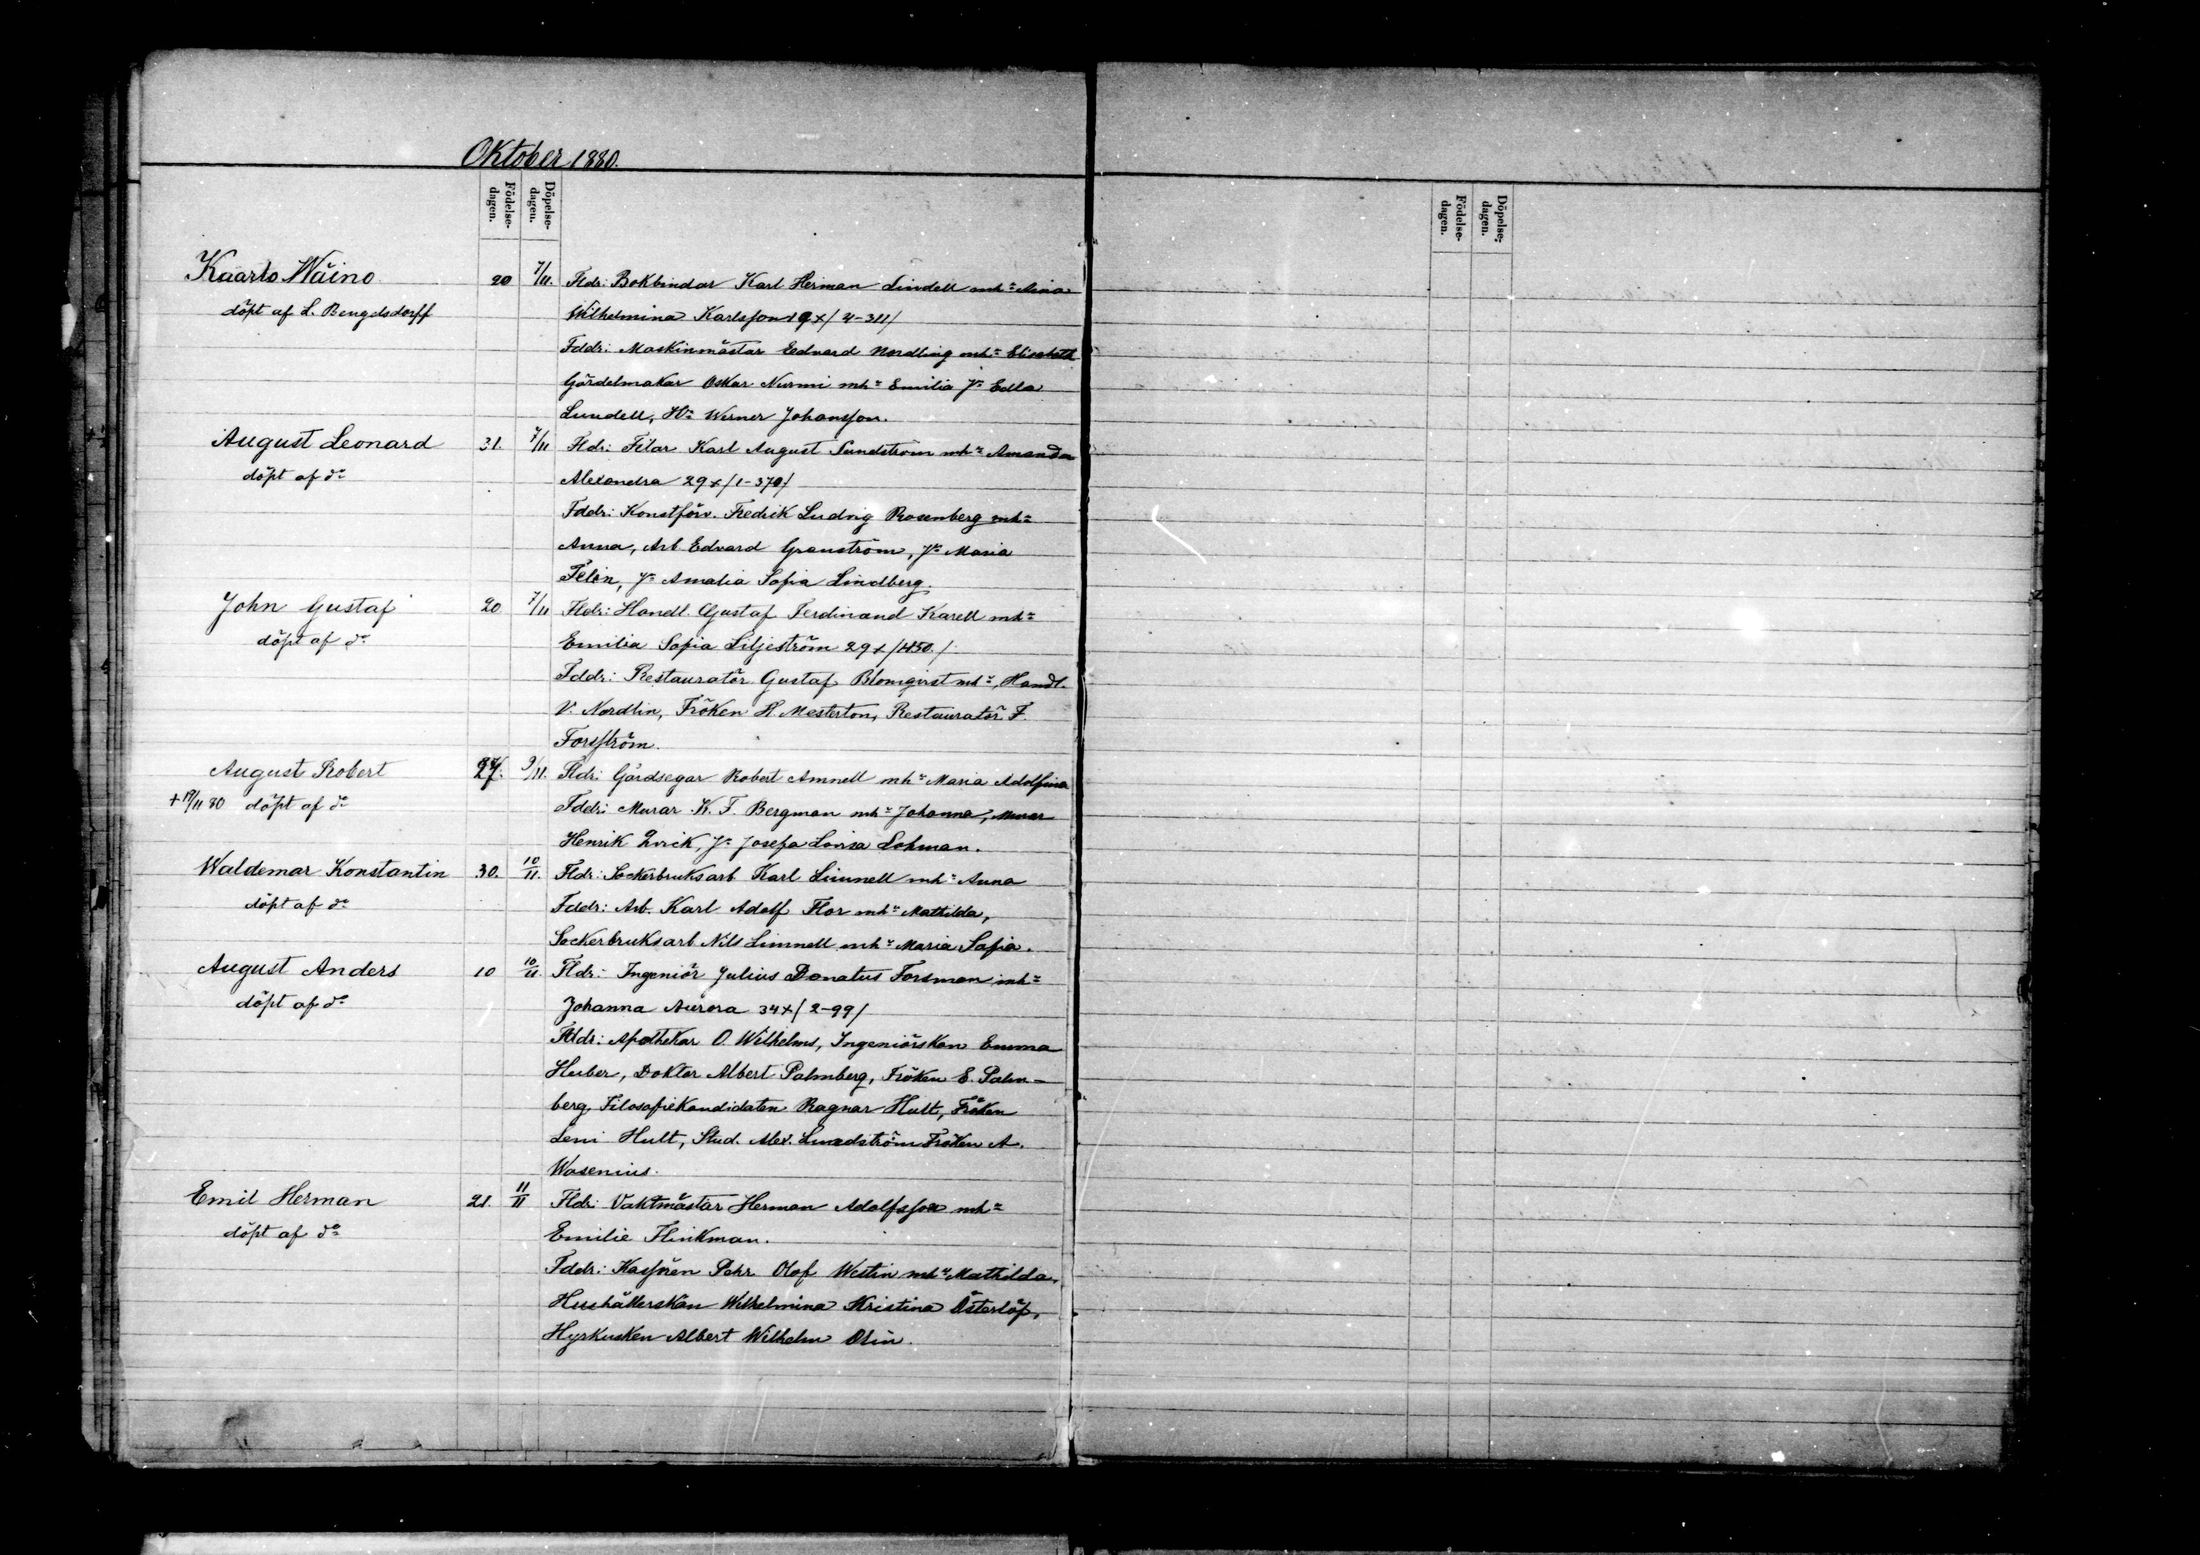 Oktober 1880.
Födelse-
dagen.
Döpelse-
dagen.
Kaarlo Wäinö 20 7/11. Fldr: Bokbindar Karl Herman Lindell mh: Aina
döpt af L. Bengelsdorff Wilhelmina Karlsson 19 x/ 4-311/
Fddr: Maskinmästar Edvard Nordling mh: Elisabeth
Gördelmakar Oskar Nurmi mh: Emilia Jn Edla
Lundell, Hr Werner Johansson.
August Leonard 31. 7/11 Fldr: Filar Karl August Sundström mh: Amanda
döpt af do Alexandra 29 x/ 1-370/
Fddr: Konstförv. Fredrik Ludvig Rosenberg mh:
Anna, Arb. Edvard Granström, Jn Maria
Felin, Jn Amalia Sofia Lindberg.
John Gustaf 20 7/11 Fldr: Handl. Gustaf Ferdinand Karell mh:
döpt af do Emilia Sofia Liljeström 29 x/ 450./
Fddr: Restauratör Gustaf Blomqvist mh:, Handl.
V. Nordlin, Fröken H. Mesterton, Restauratör F.
Forsström.
August Robert 27. 9/11. Fldr: Gårdsegar Robert Amnell mh: Maria Adolfina
+19/11 80 döpt af do Fddr: Murar K. F. Bergman mh: Johanna, Murar
Henrik Qvick, Jn Josefa Lovisa Lohman.
Waldemar Konstantin 30. 10/11. Fldr: Sockerbruksarb. Karl Limnell mh: Anna
döpt af do Fddr: Arb. Karl Adolf Flor mh: Mathilda,
Sockerbruksarb. Nils Limnell mh: Maria Sofia.
August Anders 10 10/11 Fldr: Ingeniör Julius Donatus Forsman mh:
döpt af do Johanna Aurora 34 x/ 2-99/
Fddr: Apothekar O. Wilhelms, Ingeniörskan Emma
Huber, Doktor Albert Palmberg, Fröken E. Palm-
berg, Filosofiekandidaten Ragnar Hult, Fröken
Leni Hult, Stud. Alex. Lundström Fröken A.
Wasenius.
Emil Herman 21. 11/11 Fldr: Vaktmästar Herman Adolfsson mh:
döpt af do Emilie Flinkman.
Fddr: Kassören Pehr Olof Westin mh: Mathilda,
Hushållerskan Wilhelmina Kristina Österlöf,
Hyrkusken Albert Wilhelm Olin.
Födelse-
dagen.
Döpelse-
dagen.